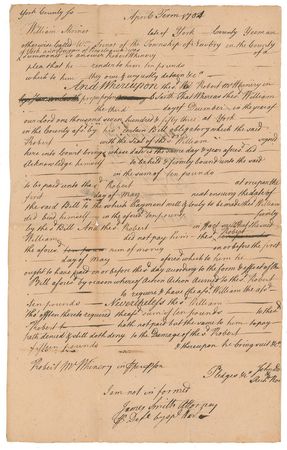 York County ss April Term 1754
William Skriner late of York County Yeoman
otherwise Called Wm of the Township of in the County
of York and Province of Pennsylvania was
summoned to answer Robert
plea that he render to him pounds
which to him he owes & unjustly detains &c
And Whereupon the sd Robert in
Saith That Whereas the sd William
the third day of December in the year of
our Lord one thousand seven hundred and fifty three at York
in the County afsd by his certain Bill obligatory which the said
Robert with the seal of the sd William signed
here into Court brings whose date is the same day & year aforesd did
acknowledge himself to be held & firmly bound unto the said
in the sum of ten pounds
to be paid unto the sd Robert at or upon the
first day of May next ensuing the date of
the said Bill to the which Payment well & truly to be made the sd William
did bind himself in the aforesd ten pounds firmly
by the sd Bill And the sd Robert in
William did not pay him the
the aforesd sum of money on or before the first
day of May aforesd which to him he
ought to have paid on or before that day according to the form & effect of the
Bill aforesd by reason whereof Action Accrued to the sd Robert
to require & have the afsd William the afsd
ten pounds Nevertheless the sd William
tho' often thereto required the afsd sum of ten pounds to the sd
Robert hath not paid but the same to him to pay
hath denied & still doth deny to the Damage of the sd Robert
fifteen pounds & thereupon he brings suit &c
Robert in
Pledges &c John Doe
Richd Roe
I am not informed
James Smith Attorney